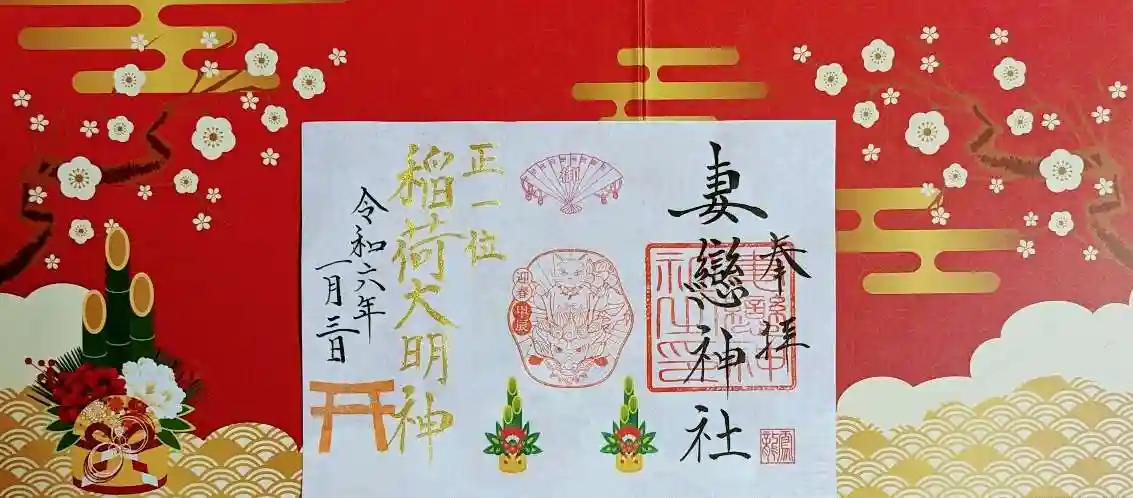 奉拝
妻戀神社
迎春
甲辰
正一位
稲荷大明神
令和六年
一月三日